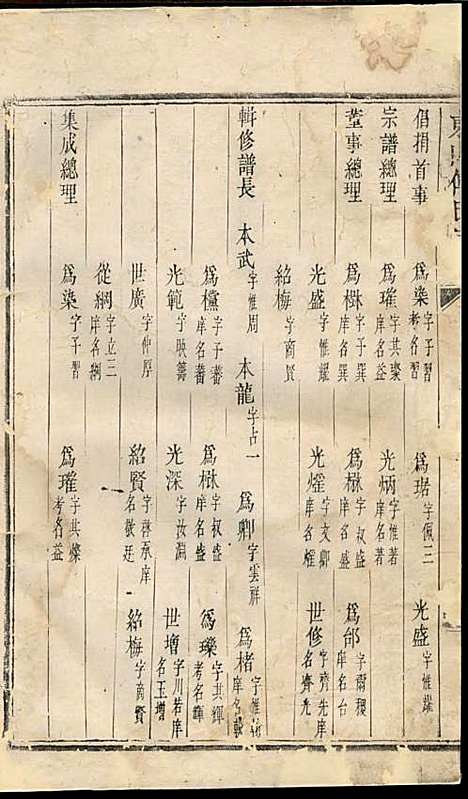 倡捐首事　為燊字子習考名習　為珺字佩三　光盛字惟耀
宗譜總理　為琟字其燦庠名益　光炳字惟著庠名著
董事總理　為樹字子選庠名選　為楙字叔盛庠名盛　為邰字爾稷庠名台
光盛字惟耀　光燿字文卿庠名燿　世修字齊先庠名齊光
紹梅字商賢
輯修譜長　本武字惟周　本龍字占一　為卿字雲祥　為楮字惟
為欓字子蕃庠名蕃　為楙字叔盛庠名盛　為瓅字其輝考名輝
光範字映籌　光深字汝淵　世增字川若庠名玉增
世廣字仲厚　紹賢字蔭承庠名徵廷　紹梅字商賢
從綱字立三庠名綱
集成總理　為燊字子習　為琟字其燦考名益